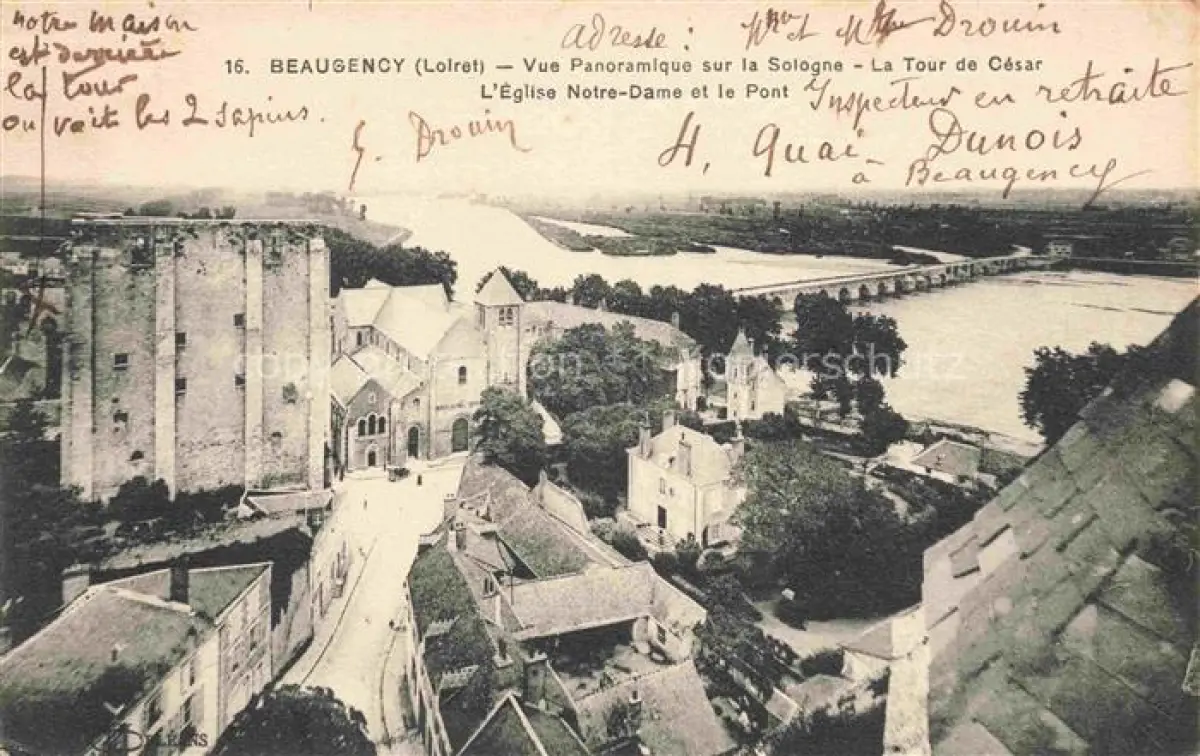 notre maison
est derrière
la tour
on voit les 2 sapins.
G. Drouin
adresse : Mr et Mme Drouin
16. BEAUGENCY (Loiret) — Vue Panoramique sur la Sologne - La Tour de César
L'Église Notre-Dame et le Pont
Inspecteur en retraite
4, Quai Dunois
à Beaugency